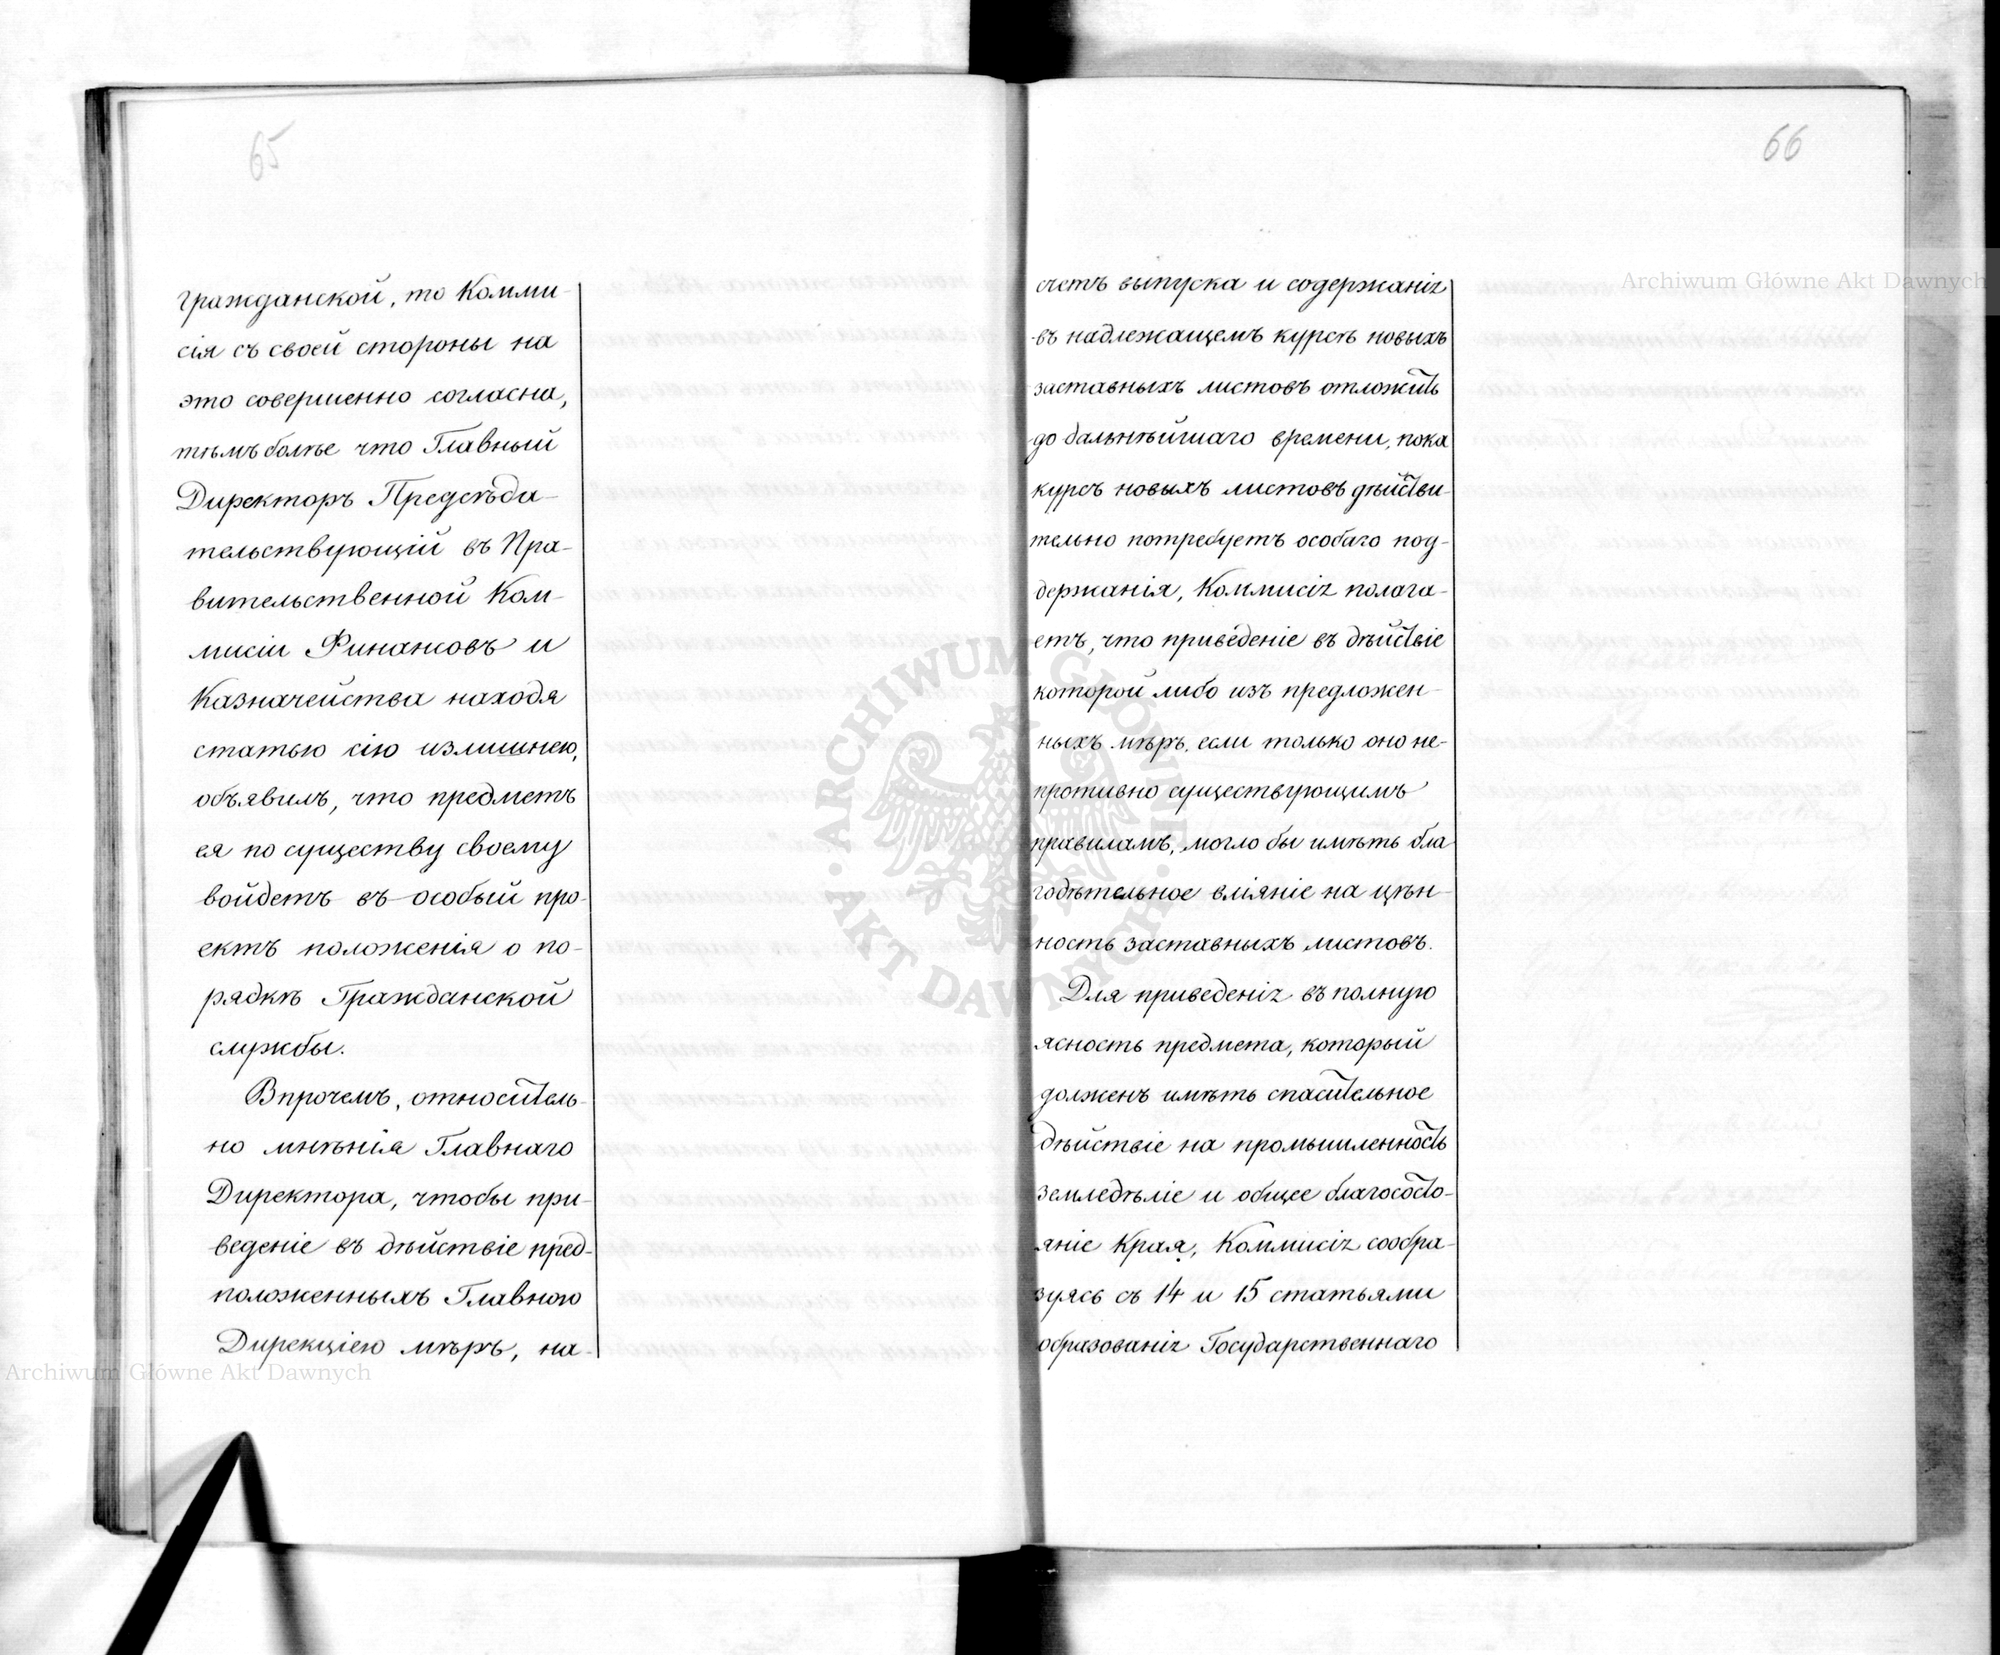 65
гражданской, то Комми-
сія съ своей стороны на
это совершенно согласна,
тѣмъ болѣе что Главный
Директоръ Предсѣда-
тельствующій въ Пра-
вительственной Ком-
мисіи Финансовъ и
Казначейства находя
статью сію излишнею,
объявилъ, что предметъ
ея по существу своему
войдетъ въ особый про-
ектъ положенія о по-
рядкѣ Гражданской
службы.
Впрочемъ, относитель-
но мнѣнія Главнаго
Директора, чтобы при-
веденіе въ дѣйствіе пред-
положенныхъ Главною
Дирекціею мѣръ, на-
66
счетъ выпуска и содержанія
въ надлежащемъ курсѣ новыхъ
заставныхъ листовъ отложить
до дальнѣйшаго времени, пока
курсъ новыхъ листовъ дѣйстви-
тельно потребуетъ особаго под-
держанія, Коммисія полага-
етъ, что приведеніе въ дѣйствіе
которой либо изъ предложен-
ныхъ мѣръ, если только оно не-
противно существующимъ
правиламъ, могло бы имѣть бла
годѣтельное вліяніе на цѣн-
ность заставныхъ листовъ.
Для приведенія въ полную
ясность предмета, который
долженъ имѣть спасительное
дѣйствіе на промышленность
земледѣліе и общее благососто-
яніе Края, Коммисія сообра-
зуясь съ 14 и 15 статьями
образованія Государственнаго
Archiwum Główne Akt Dawnych
Archiwum Główne Akt Dawnych
ARCHIWUM GŁÓWNE AKT DAWNYCH